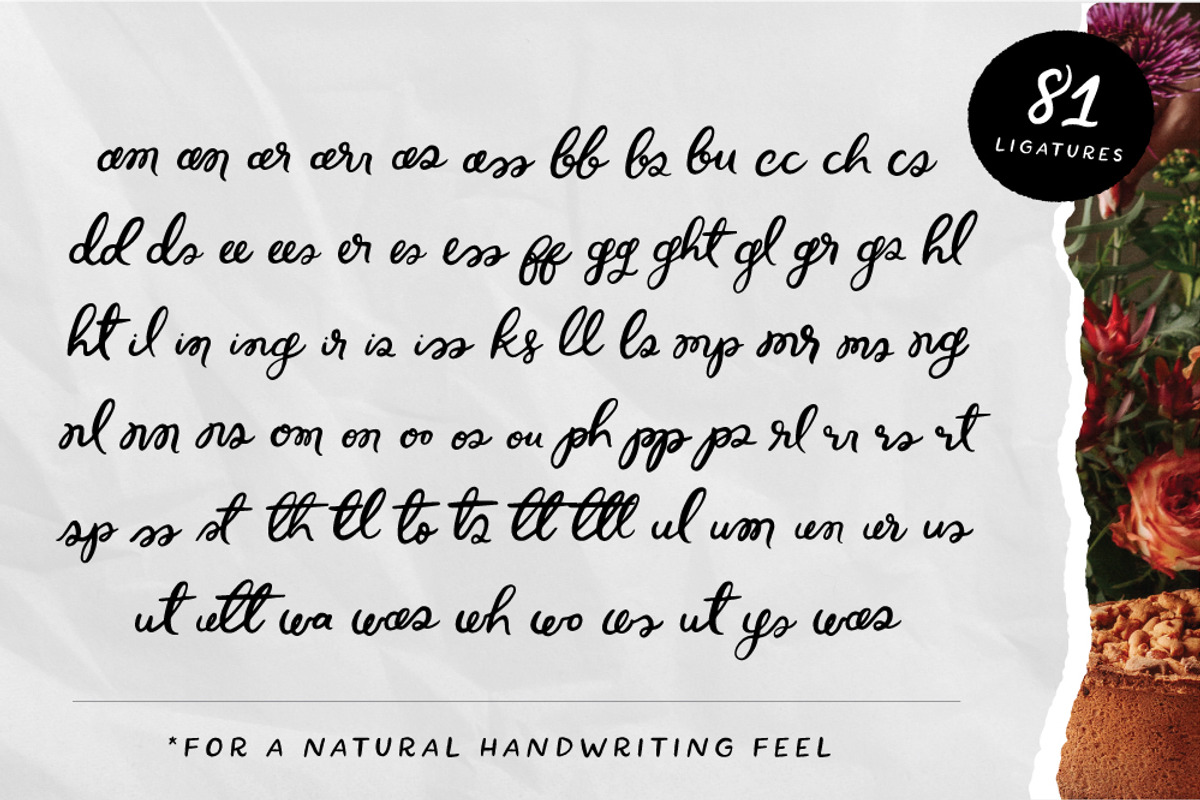 81
LIGATURES
am an ar arr as ass bb bs bu cc ch cs
dd ds ee ees er es ess ff gg ght gl gr gs hl
ht il in ing ir is iss ks ll ls mp mr ms ng
nl nn ns om on oo os ou ph pp ps rl rr rs rt
sp ss st th tl to ts tt ttl ul um un ur us
ut utt wa was wh wo ws ut ys was
*FOR A NATURAL HANDWRITING FEEL